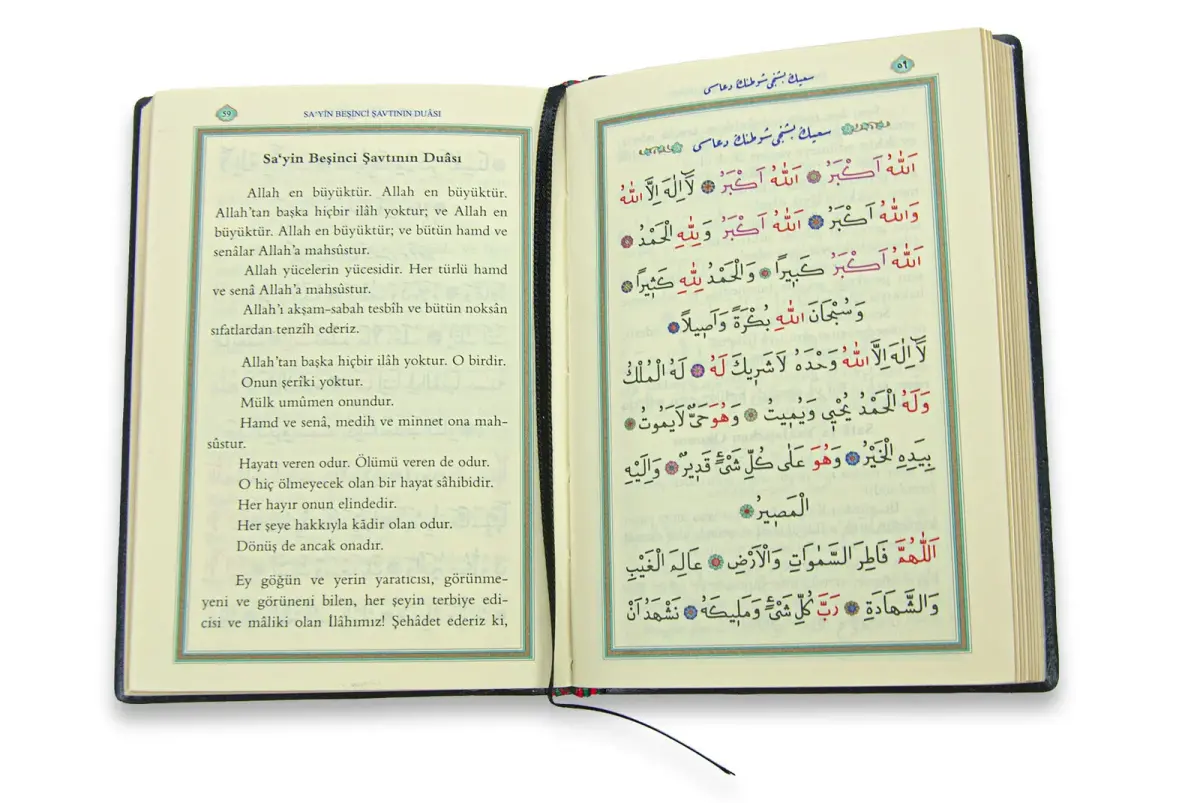 59
SA'YİN BEŞİNCİ ŞAVTININ DUÂSI
Sa'yin Beşinci Şavtının Duâsı
Allah en büyüktür. Allah en büyüktür.
Allah'tan başka hiçbir ilâh yoktur; ve Allah en
büyüktür. Allah en büyüktür; ve bütün hamd ve
senâlar Allah'a mahsûstur.
Allah yücelerin yücesidir. Her türlü hamd
ve senâ Allah'a mahsûstur.
Allah'ı akşam-sabah tesbîh ve bütün noksân
sıfatlardan tenzîh ederiz.
Allah'tan başka hiçbir ilâh yoktur. O birdir.
Onun şerîki yoktur.
Mülk umûmen onundur.
Hamd ve senâ, medih ve minnet ona mah-
sûstur.
Hayatı veren odur. Ölümü veren de odur.
O hiç ölmeyecek olan bir hayat sâhibidir.
Her hayır onun elindedir.
Her şeye hakkıyla kādir olan odur.
Dönüş de ancak onadır.
Ey göğün ve yerin yaratıcısı, görünme-
yeni ve görüneni bilen, her şeyin terbiye edi-
cisi ve mâliki olan İlâhımız! Şehâdet ederiz ki,
سعيك بشنجى شوطنك دعاسى
٥٩
سعيك بشنجى شوطنك دعاسى
اَللّٰهُ اَكْبَرُ اَللّٰهُ اَكْبَرُ لَٓا اِلٰهَ اِلَّا اللّٰهُ
وَاللّٰهُ اَكْبَرُ اَللّٰهُ اَكْبَرُ وَلِلّٰهِ الْحَمْدُ
اَللّٰهُ اَكْبَرُ كَبِيرًا وَالْحَمْدُ لِلّٰهِ كَثِيرًا
وَسُبْحَانَ اللّٰهِ بُكْرَةً وَاَصِيلًا
لَٓا اِلٰهَ اِلَّا اللّٰهُ وَحْدَهُ لَا شَرِيكَ لَهُ لَهُ الْمُلْكُ
وَلَهُ الْحَمْدُ يُحْيِي وَيُمِيتُ وَهُوَ حَيٌّ لَا يَمُوتُ
بِيَدِهِ الْخَيْرُ وَهُوَ عَلٰى كُلِّ شَيْءٍ قَدِيرٌ وَاِلَيْهِ
الْمَصِيرُ
اَللّٰهُمَّ فَاطِرَ السَّمٰوَاتِ وَالْاَرْضِ عَالِمَ الْغَيْبِ
وَالشَّهَادَةِ رَبَّ كُلِّ شَيْءٍ وَمَلِيكَهُ نَشْهَدُ اَنْ